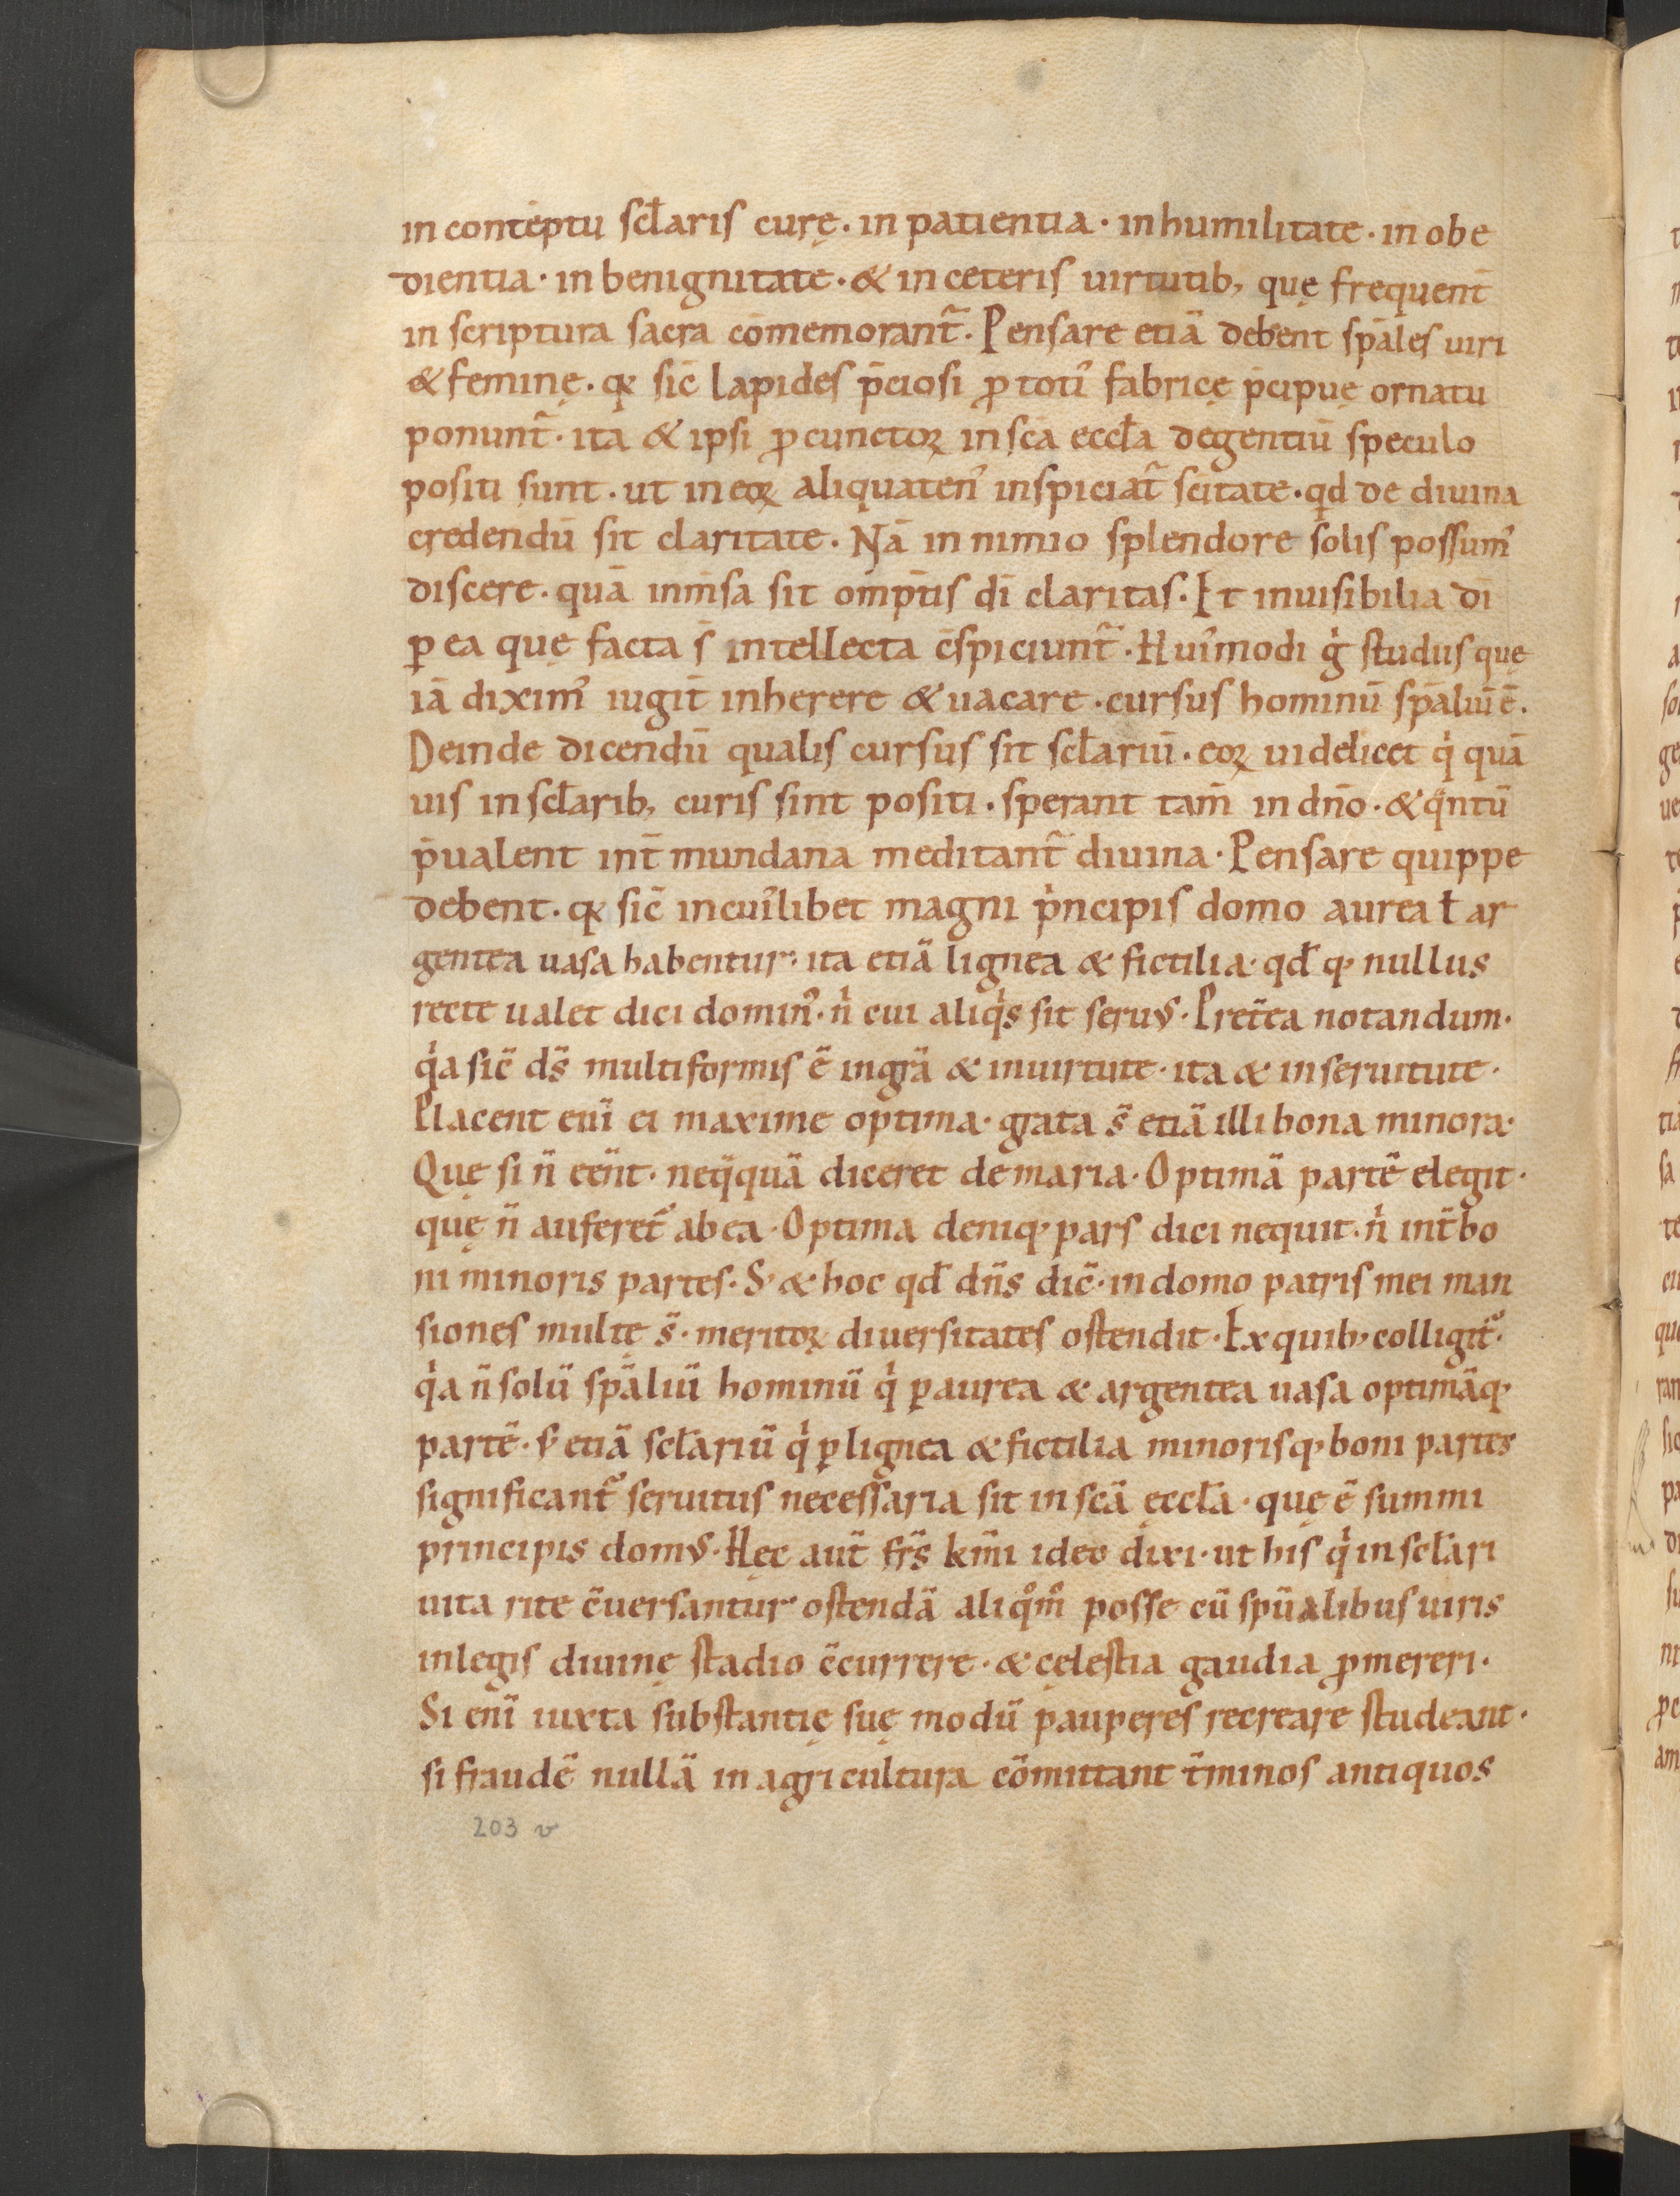 in contēptu scl̄aris curę. in patientia. in humilitate. in obe
dientia. in benignitate. & in ceteris uirtutib; quę frequent̄
in scriptura sacra cōmemorant̃. Pensare etiā debent sp̄ales uiri
& feminę. qꝛ sic̄ lapides p̄ciosi ꝓ totiꝰ fabricę p̄cipuę ornatu
ponunt̃. ita & ipsi ꝓ cunctoꝝ in sc̄a eccl̄a degentiū speculo
positi sunt. ut in eoꝝ aliquatenꝰ inspiciat̃ sc̄itate. qd̄ de diuina
credendū sit claritate. Nā in nimio splendore solis possumꝰ
discere. quā inm̄sa sit omp̄tis dī claritas. Et inuisibilia dī
ꝑ ea quę facta s̄ intellecta c̄spiciunt̃. Huiꝰmodi gͥ studiis quę
iā diximꝰ iugit̄ inherere & uacare. cursus hominū sp̄aliū ē.
Deinde dicendū qualis cursus sit scl̄ariū. eoꝝ uidelicet qͥ quā
uis in scl̄arib; curis sint positi. sperant tam̄ in dn̄o. & qͣntū
p̄ualent int̄ mundana meditant̃ diuina. Pensare quippe
debent. qꝛ sic̄ in cuiꝰlibet magni pͥncipis domo aurea ł ar
gentea uasa habentur. ita etiā lignea & fictilia. qd̄ q; nullus
recte ualet dici dominꝰ. nͥ cui aliqͥs sit seruꝰ. Pret̄ea notandum.
qͥa sic̄ ds̄ multiformis ē in gr̄a & in uirtute. ita & in seruitute.
Placent eni̅ ei maxime optima. grata s̄ etiā illi bona minora.
Quę si n̄ een̄t. neqͣquā diceret de maria. Optimā partē elegit.
quę n̄ auferet̃ ab ea. Optima deniq; pars dici nequit. nͥ int̄ bo
ni minoris partes. S; & hoc qd̄ dn̄s dic̄. in domo patris mei man
siones multę s̄. meritoꝝ diuersitates ostendit. Ex quib; colligit̃.
qͥa n̄ solū sp̄aliū hominū qͥ ꝑ aurea & argentea uasa optimāq;
partē. s; etiā scl̄ariū qͥ ꝑ lignea & fictilia minorisq; boni partes
significant̃ seruitus necessaria sit in sc̄a ęccl̄a. quę ē summi
principis domꝰ. Hęc aut̄ fr̄s km̄i ideo dixi. ut his qͥ in scl̄ari
uita rite c̄uersantur ostendā aliqͦm̊ posse cū spūalibus uiris
in legis diuinę stadio c̄currere. & cęlestia gaudia ꝓmereri.
Si eni̅ iuxta substantię suę modū pauperes recreare studeant.
si fraudē nullā in agri cultura cōmittant t̄minos antiquos
203 v